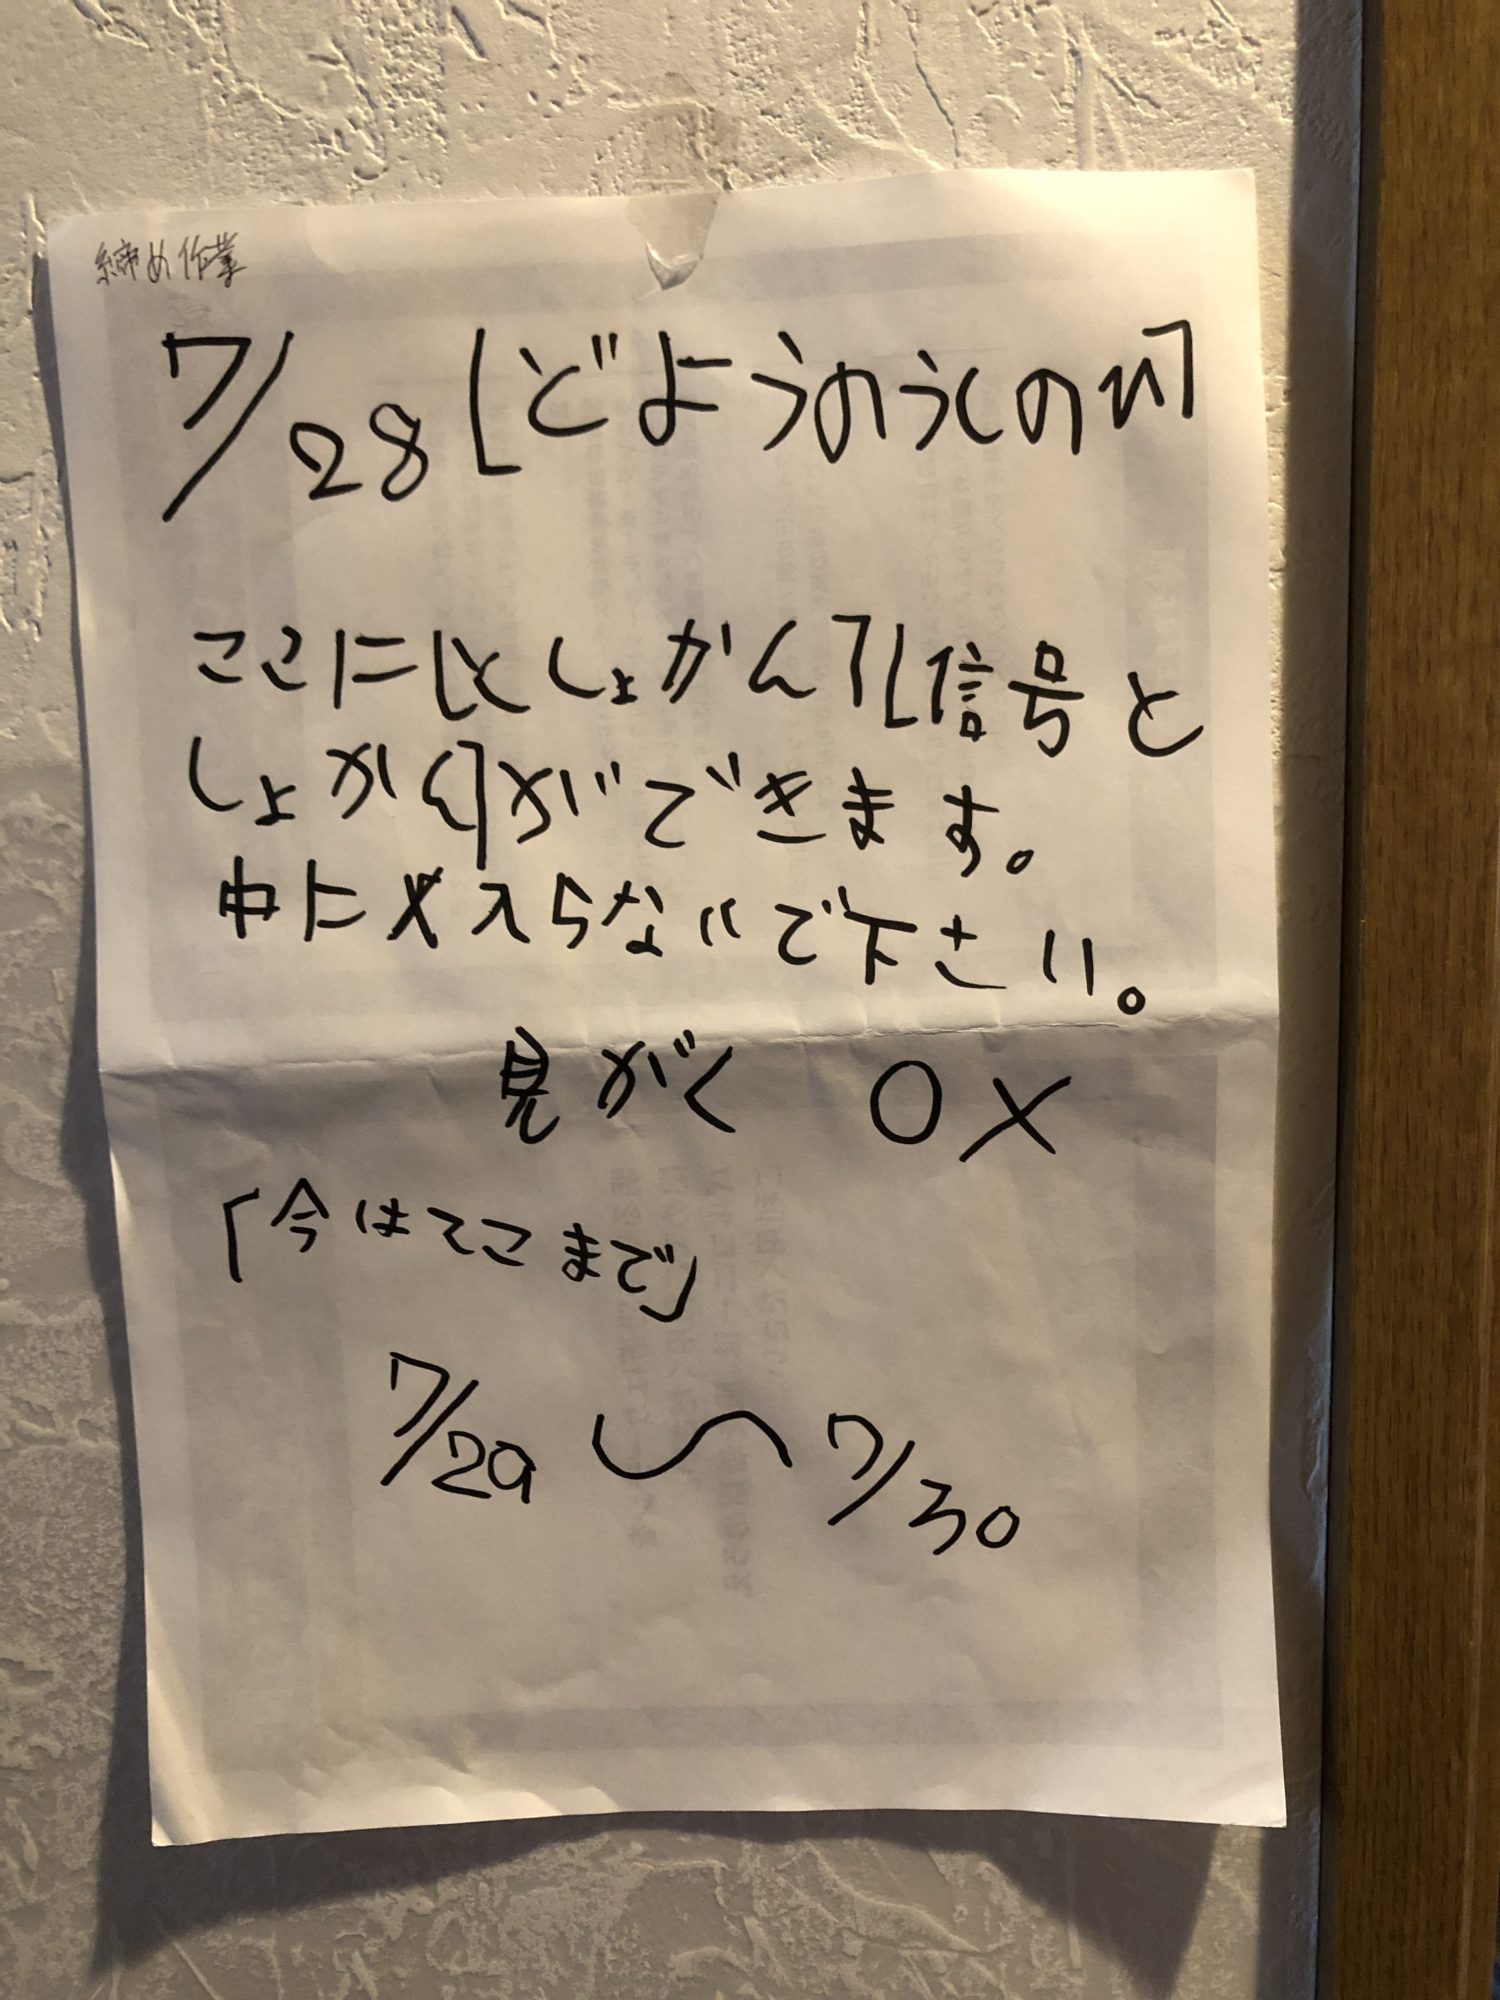 締め作業
7/28「どようのうしの日」
ここに「としょかん」「信号と
しょかん」ができます。
中に入らないで下さい。
見がく ○×
「今はここまで」
7/29〜7/30